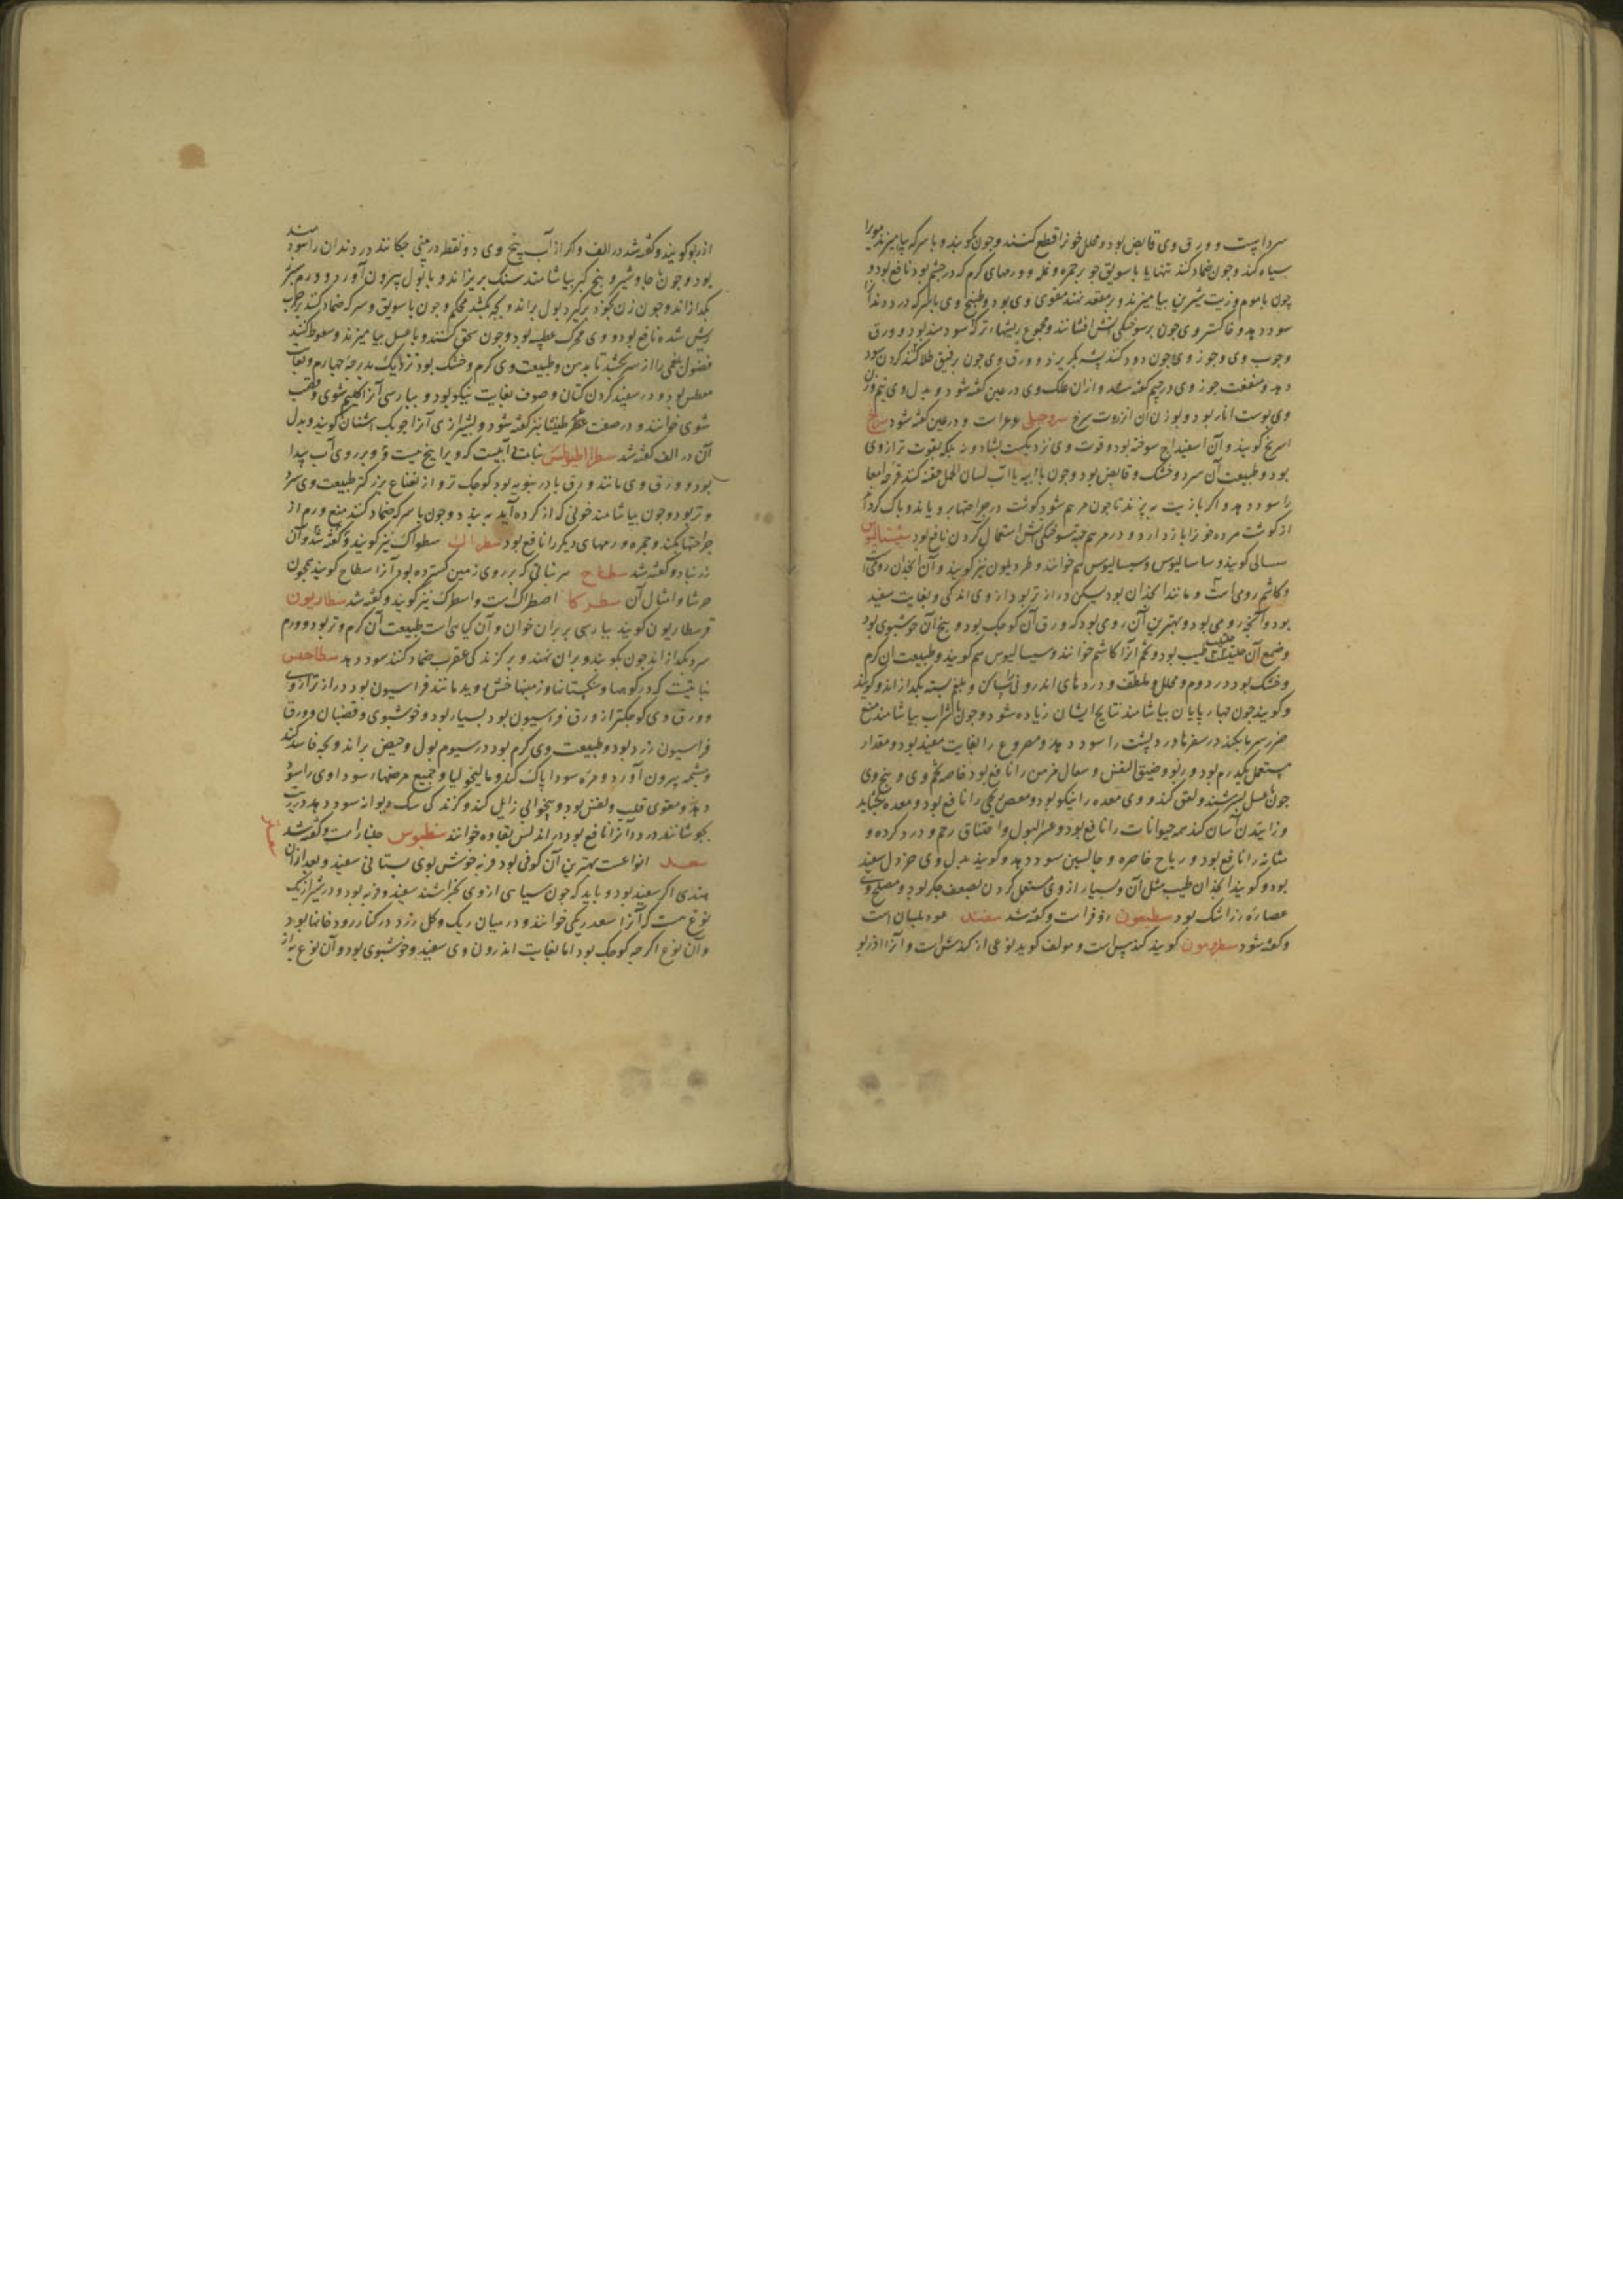 سرداست و ورق وی قابض بود و محلل خونرا قطع کنند و چون بکوبند و با سرکه بیامیزند مویرا
سیاه کند و چون ضماد کنند تنها یا با سویق جو بر حمره و نمله و ورمهای کرم که در چشم بود نافع بود و
چون با موم و زیت شیرین بیامیزند و بر مقعد نهند مقوی وی بود و طبیخ وی با سرکه درد دندانرا
سود دهد و خاکستر وی چون بر سوختگی آتش افشانند و مجموع ریشهاء تر که سودمند بود و ورق
و چوب وی و جوز وی چون دود کنند پشه بگریزد و ورق وی چون رقیق طلا کنند کردن سود
دهد و منفعت جوز وی در جیم گفته شد و ازان علک وی در عین گفته شود و بدل وی نیم وزن
وی پوست انار بود و بوزن آن انزروت سرخ سرو جبلی عرعر است و در عین گفته شود سریج
اسرنج گویند و آن اسفیداج سوخته بود و قوت وی نزدیکست بشادونه بلکه بقوت تر از وی
بود و طبیعت آن سرد و خشک و قابض بود و چون با آب لسان الحمل حقنه کنند قرحه امعا
را سود دهد و اگر با زیت بپزند تا چون مرهم شود گوشت در جراحتها برویاند و پاک گرداند
از گوشت مرده خونرا باز دارد و در مرهم جهة سوختگی آتش استعمال کردن نافع بود سیسالیوس
سالی گویند و ساسالیوس و سیسالیوس هم خوانند و طردیلون نیز گویند و آن انجدان رومی است
و کاشم رومی است و مانند انجدان بود لیکن درازتر بود از وی اندکی و بغایت سفید
بود و آنچه رومی بود و بهترین آن رومی بود که ورق آن کوچک بود و بیخ آن خوشبوی بود
و صمغ آن حلتیت طیب بود و تخم آنرا کاشم خوانند و سیسالیوس هم گویند و طبیعت آن گرم
و خشک بود در دوم و محلل و ملطف و دردهای اندرونی را ساکن و بلغم بسته بگدازاند و گویند
و گویند چون چهارپایان بیاشامند نتایج ایشان زیاده شود و چون با شراب بیاشامند منع
ضرر سرما بکند در سفرها و درد پشت را سود دهد و مصروع را بغایت مفید بود و مقدار
مستعمل یکدرم بود و ربو و ضیق النفس و سعال مزمن را نافع بود خاصه تخم وی و بیخ وی
چون با عسل بسرشند و لعق کنند و وی معده را نیکو بود و مغص ریحی را نافع بود و معده بگشاید
و زاییدن آسان کند همه حیوانات را نافع بود و عسر البول و اختناق رحم و درد گرده و
مثانه را نافع بود و ریاح خاصره و جالبین سود دهد و گویند بدل وی خردل سفید
بود و گویند انجدان طیب مثل آن و بسیار از وی مستعمل کردن مضعف جگر بود و مصلح وی
عصاره زرشک بود سطیعون زوفر است و گفته شد سفند عود بلسان است
و گفته شود سطرنیون گویند کندس است و مولف گوید نوعی از کندش است و آنرا اذربو
اذربو گویند و گفته شد در الف و اگر از آب بیخ وی دو نقطه در بینی چکانند درد دندان را سودمند
بود و چون با جاوشیر و بیخ کبر بیاشامند سنگ بریزاند و با بول بیرون آورد و ورم سپرز
بگدازاند و چون زن بخود برگیرد بول براند و بچه بکشد محکم و چون با سویق و سرکه ضماد کنند بر جرب
ریش شده نافع بود و وی محرک عطسه بود و چون سحق کنند و با عسل بیامیزند و سعوط کنند
فضول بلغمی را از سر بکشد تا بدهن و طبیعت وی گرم و خشک بود نزدیک بدرجه چهارم و بغایت
معطس بود و در سفید کردن کتان و صوف بغایت نیکو بود و بپارسی آنرا گلیم شوی و قصب
شوی خوانند و در صفت عطر طنیثا نیز گفته شود و بشیرازی آنرا چوبک اشنان گویند و بدل
آن در الف گفته شد سطراطیوطس نباتی آبیست که ویرا بیخ نیست و بر روی آب پیدا
بود و ورق وی مانند ورق بادرنبویه بود کوچک تر و از نعناع بزرگتر طبیعت وی سرد
و تر بود و چون بیاشامند خونی که از گرده آید ببندد و چون با سرکه ضماد کنند منع ورم از
جراحتها بکند و حمره و ورمهای دیگر را نافع بود سطراک سطواک نیز گویند و گفته شد و آن
زرنباد و گفته شد سطاح هر نباتی که بر روی زمین گسترده بود آنرا سطاح گویند همچون
حرشا و امثال آن سطرکا اصطراک است و اسطرک نیز گویند و گفته شد سطاریون
قرسطاریون گویند بپارسی بربران خوان و آن گیاهی است طبیعت آن گرم و تر بود و ورم
سرد بگدازاند چون بکوبند و بران نهند و بر گزندگی عقرب ضماد کنند سود دهد سطاخیس
نباتیست که در کوهها و سنگستانها و زمینها خشن روید مانند فراسیون بود درازتر از وی
و ورق وی کوچکتر از ورق فراسیون بود بسیار بود و خوشبوی و قضبان و ورق
فراسیون زرد بود و طبیعت وی گرم بود در سیوم بول و حیض براند و بچه فاسد کند
و مشیمه بیرون آورد و مره سودا پاک کند و مالیخولیا و جمیع مرضهاء سوداوی را سود
دهد و مقوی قلب و نفس بود و بیخوابی زایل کند و گزندگی سگ دیوانه سود دهد در زیت
بجوشانند درد را نافع بود در اندلس بقاده خوانند سطیوس جلنار است و گفته شد
سعد انواعست بهترین آن کوفی بود فربه خوش بوی بستانی سفید و بعد ازان
هندی اگر سفید بود و باید که چون سیاهی از وی بخراشند سفید و فربه بود و در شیراز یک
نوع هست که آنرا سعد ریگی خوانند و در میان ریگ و گل زرد در کنار رودخانها بود
و آن نوع اگرچه کوچک بود اما بغایت اندرون وی سفید و خوشبوی بود و آن نوع به از